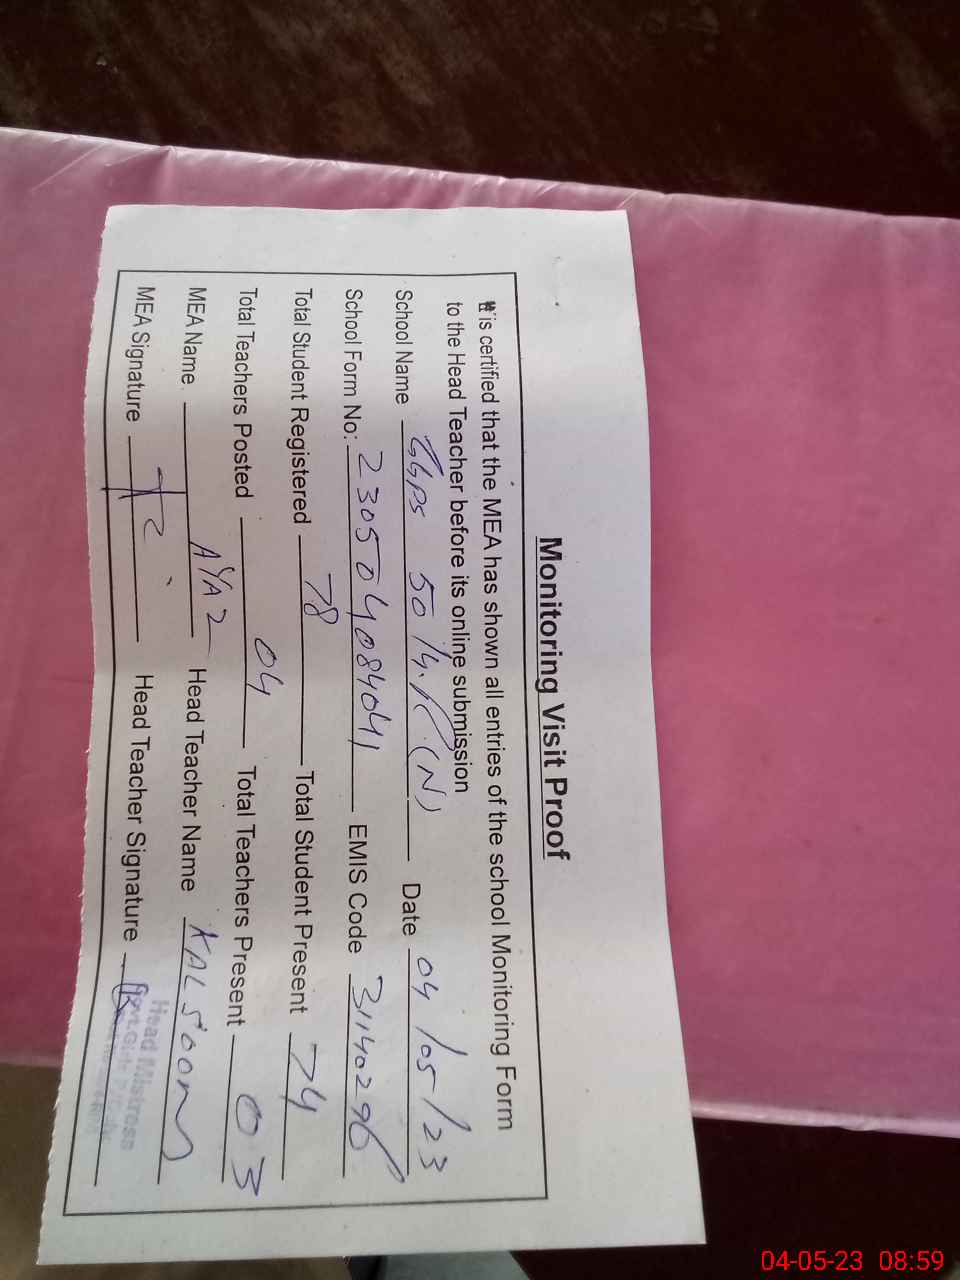 Monitoring Visit Proof
It is certified that the MEA has shown all entries of the school Monitoring Form
to the Head Teacher before its online submission
School Name GGPS 50/4.R(N) Date 04/05/23
School Form No: 230504084041 EMIS Code 31140296
Total Student Registered 78 Total Student Present 74
Total Teachers Posted 04 Total Teachers Present 03
MEA Name. AYAZ Head Teacher Name KALSOOM
MEA Signature Head Teacher Signature
Head Mistress
Govt. Girls
04-05-23 08:59